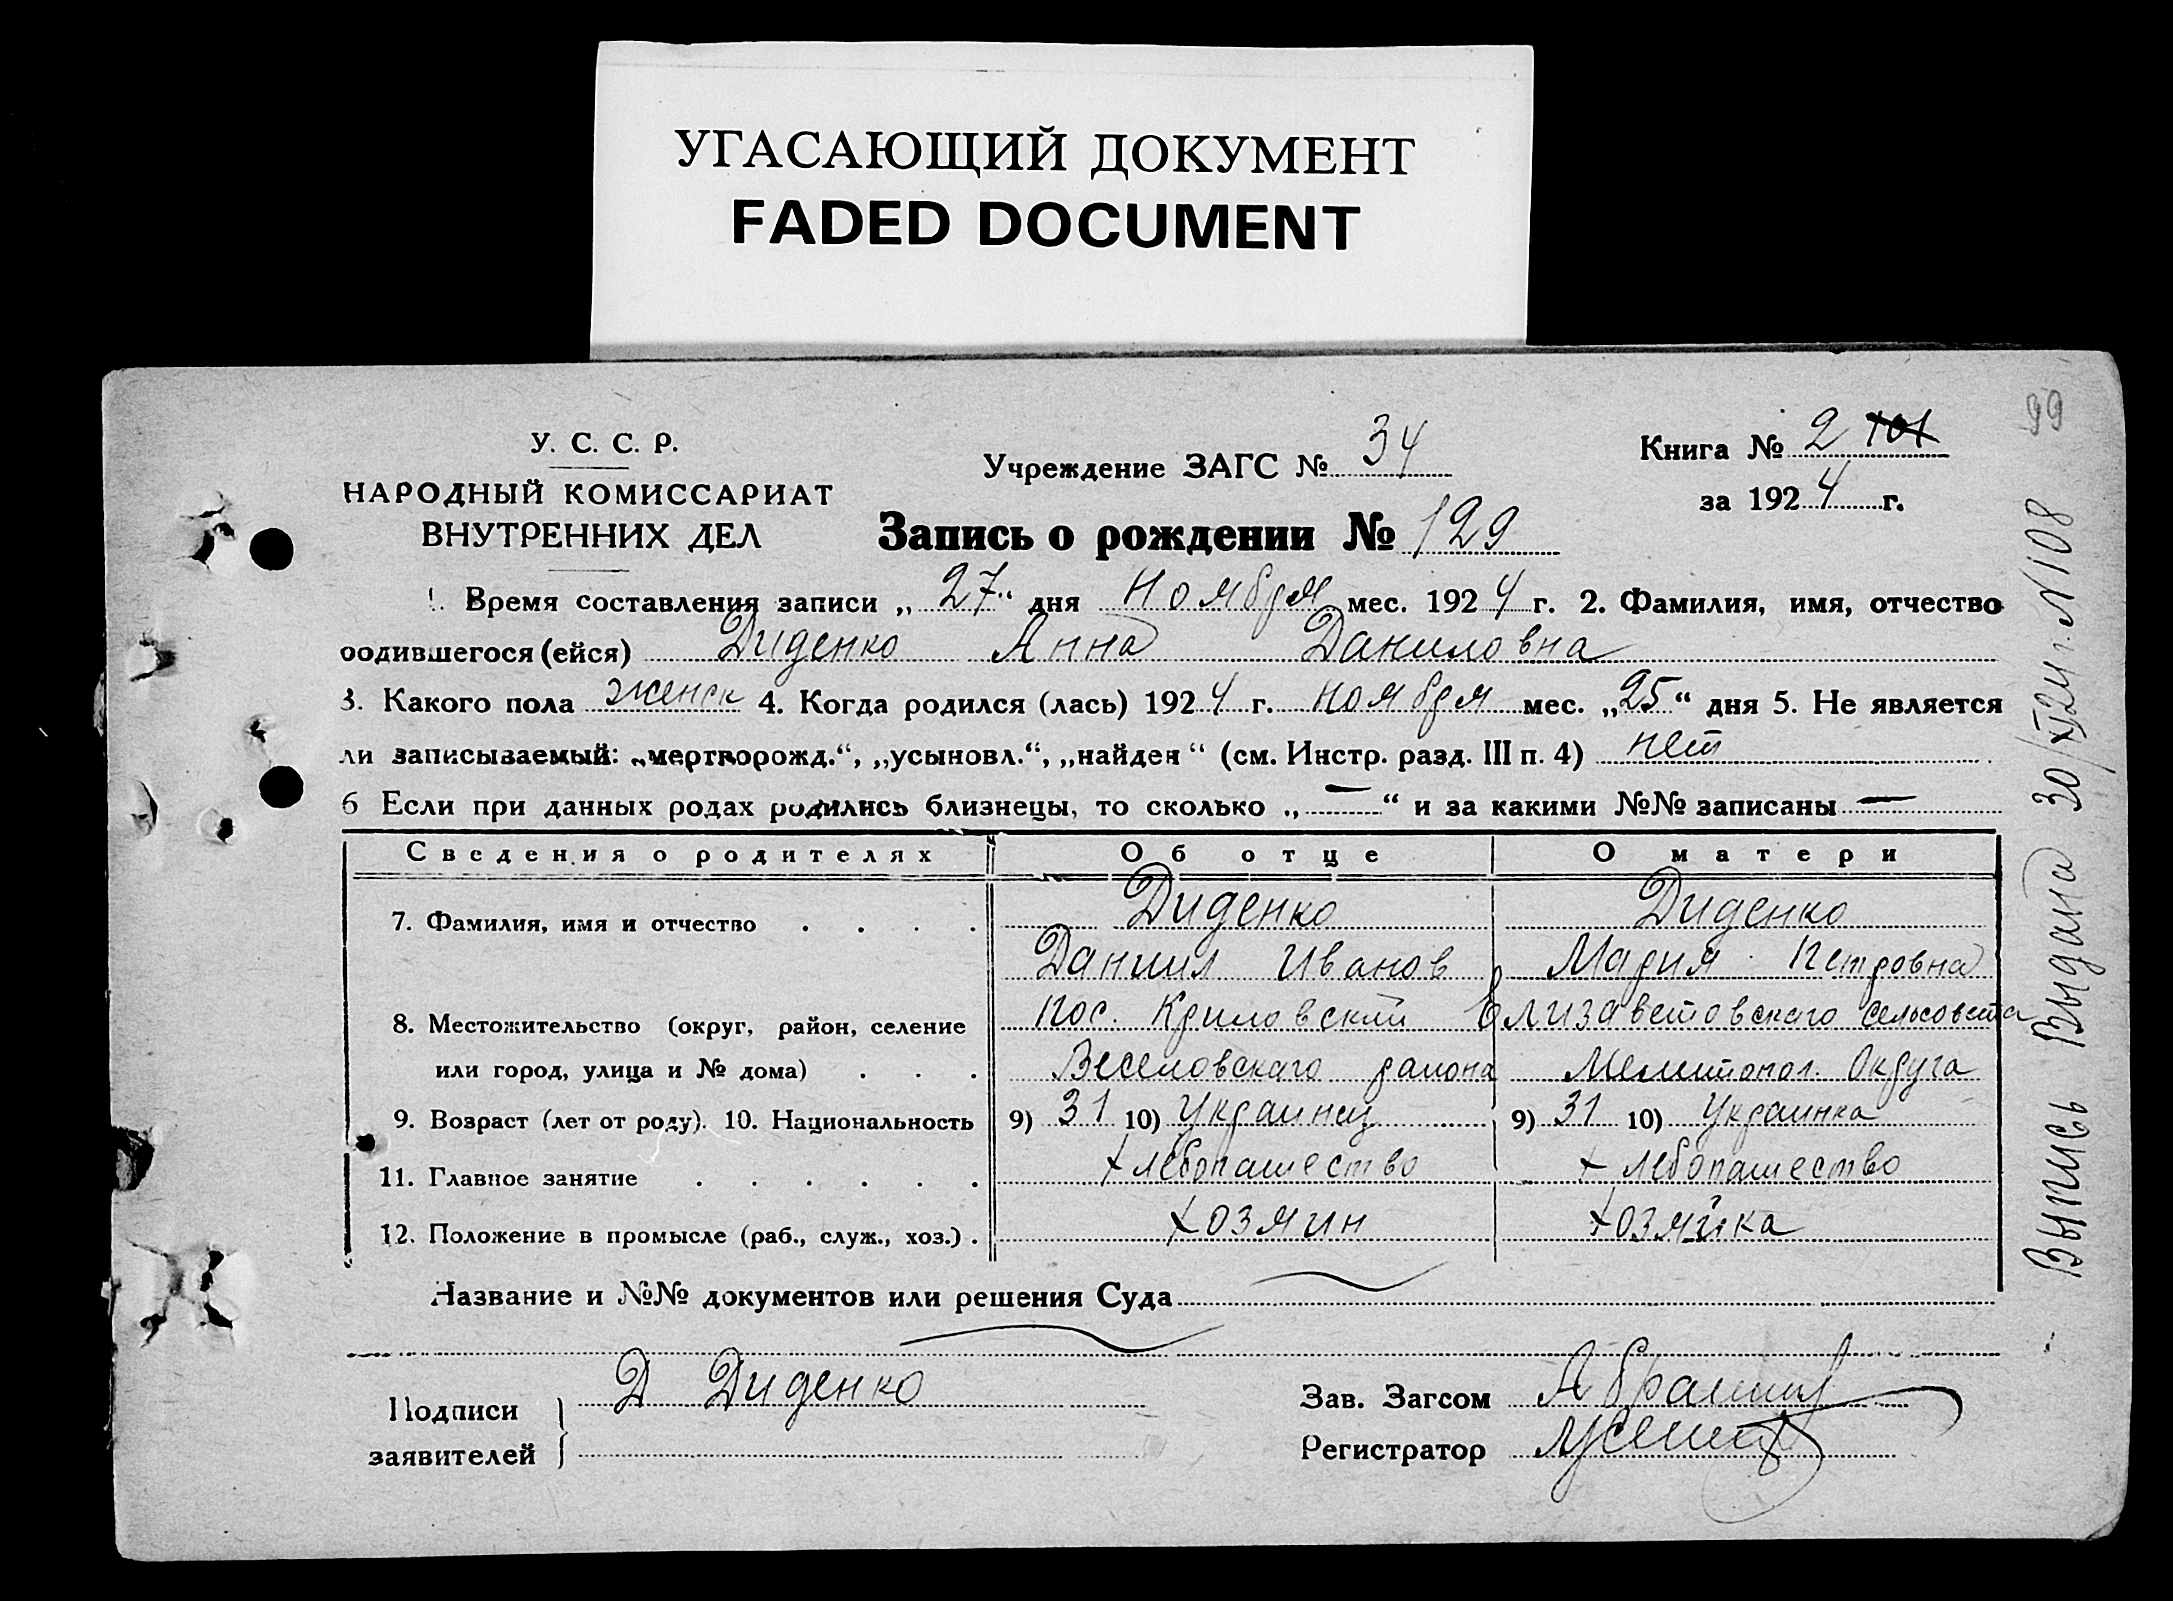 УГАСАЮЩИЙ ДОКУМЕНТ
FADED DOCUMENT
99
У. С. С. Р.
НАРОДНЫЙ КОМИССАРИАТ
ВНУТРЕННИХ ДЕЛ
Учреждение ЗАГС № 34
Книга № 2 101
за 1924 г.
Запись о рождении № 129
1. Время составления записи „27“ дня Ноября мес. 1924 г. 2. Фамилия, имя, отчество
родившегося (ейся) Диденко Анна Даниловна
3. Какого пола женск 4. Когда родился (лась) 1924 г. ноября мес. „25“ дня 5. Не является
ли записываемый: „мертворожд.“, „усыновл.“, „найден“ (см. Инстр. разд. III п. 4) нет
6 Если при данных родах родились близнецы, то сколько „—“ и за какими №№ записаны —
Сведения о родителях Об отце О матери
7. Фамилия, имя и отчество . . . . Диденко Диденко
Даниил Иванов Мария Петровна
8. Местожительство (округ, район, селение пос. Криловский Елизаветовскаго сельсовета
или город, улица и № дома) . . . Веселовскаго района Мелитопол. Округа
9. Возраст (лет от роду). 10. Национальность 9) 31 10) Украинец 9) 31 10) Украинка
11. Главное занятие . . . . . . Хлебопашество Хлебопашество
12. Положение в промысле (раб., служ., хоз.) . Хозяин Хозяйка
Название и №№ документов или решения Суда
Подписи
заявителей
Д Диденко
Зав. Загсом
Регистратор
Выпись Выдана 30/XI 24 г. N 1108